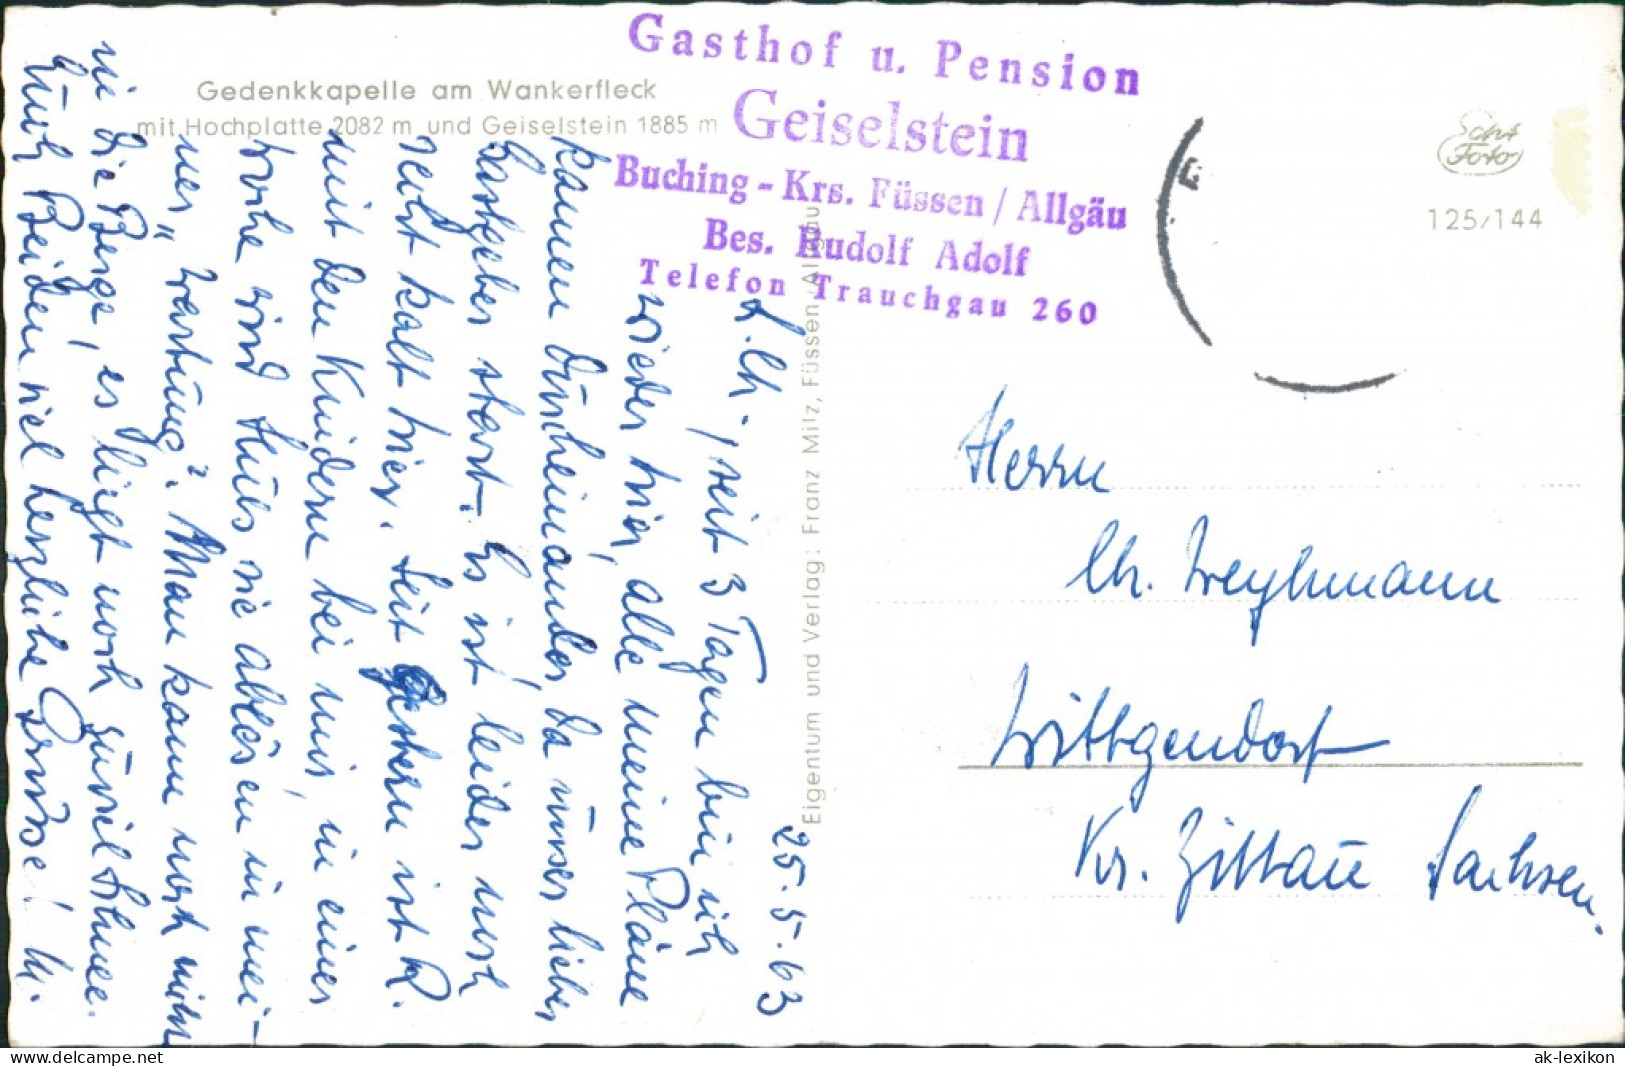 Gedenkkapelle am Wankerfleck
mit Hochplatte 2082 m und Geiselstein 1885 m
Gasthof u. Pension
Geiselstein
Buching - Krs. Füssen / Allgäu
Bes. Rudolf Adolf
Telefon Trauchgau 260
Echt
Foto
125/144
Eigentum und Verlag: Franz Milz, Füssen/Allgäu
25.5.63
L. Ch., seit 3 Tagen bin ich
wieder hier, alle meine Pläne
kamen durcheinander, da unser lieber
Gastgeber starb. Es ist leider noch
recht kalt hier. Seit gestern ist R.
mit den Kindern bei mir, in einer
Woche wird Huls sie ablösen in mei-
ner „Wartung". Man kann noch nicht
in die Berge, es liegt noch zuviel Schnee.
Euch Beiden viel herzliche Grüsse! M.
Herrn
Ch. Weyhmann
Wittgendorf
Kr. Zittau Sachsen.
ak-lexikon - the online collectors marketplace
ak-lexikon